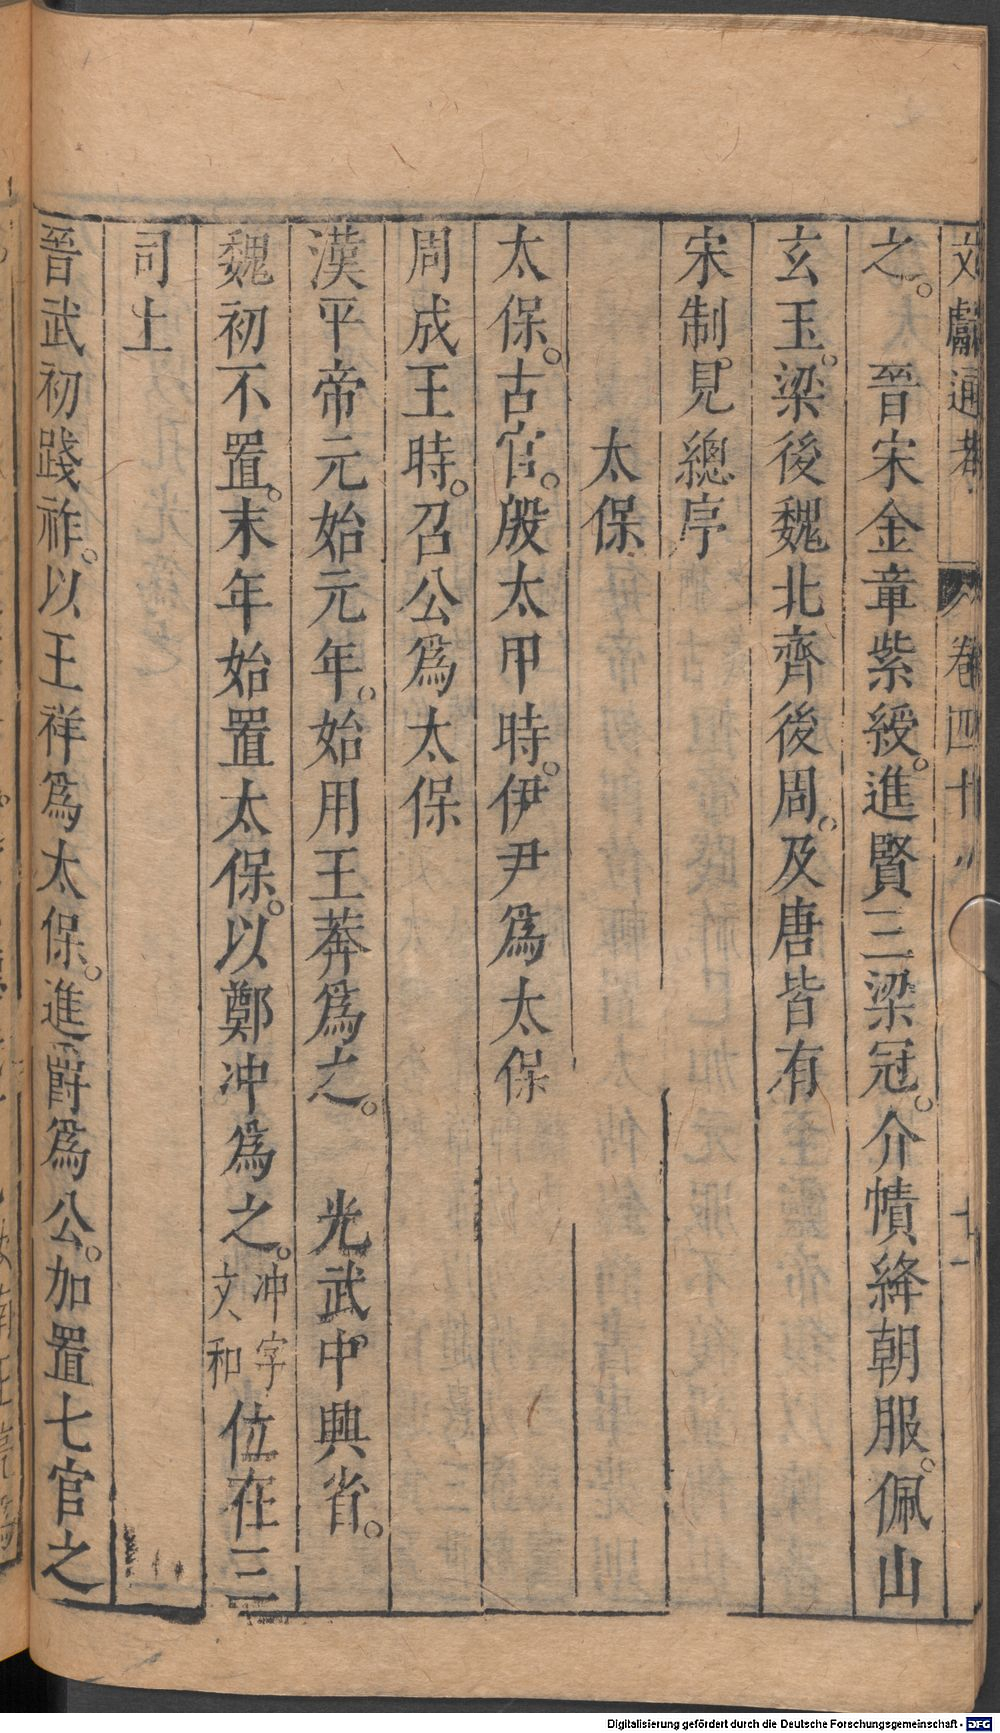 文獻通考 卷四十八 十一
之。 晉宋金章紫綬。進賢三梁冠。介幘絳朝服。佩山
玄玉。梁後魏北齊後周。及唐皆有
宋制。見總序
太保
太保。古官。殷太甲時。伊尹爲太保
周成王時。召公爲太保
漢平帝元始元年。始用王莽爲之。 光武中興省。
魏初不置。末年始置太保。以鄭冲爲之。冲字文和位在三
司上
晉武初踐祚。以王祥爲太保。進爵爲公。加置七官之
Digitalisierung gefördert durch die Deutsche Forschungsgemeinschaft - DFG